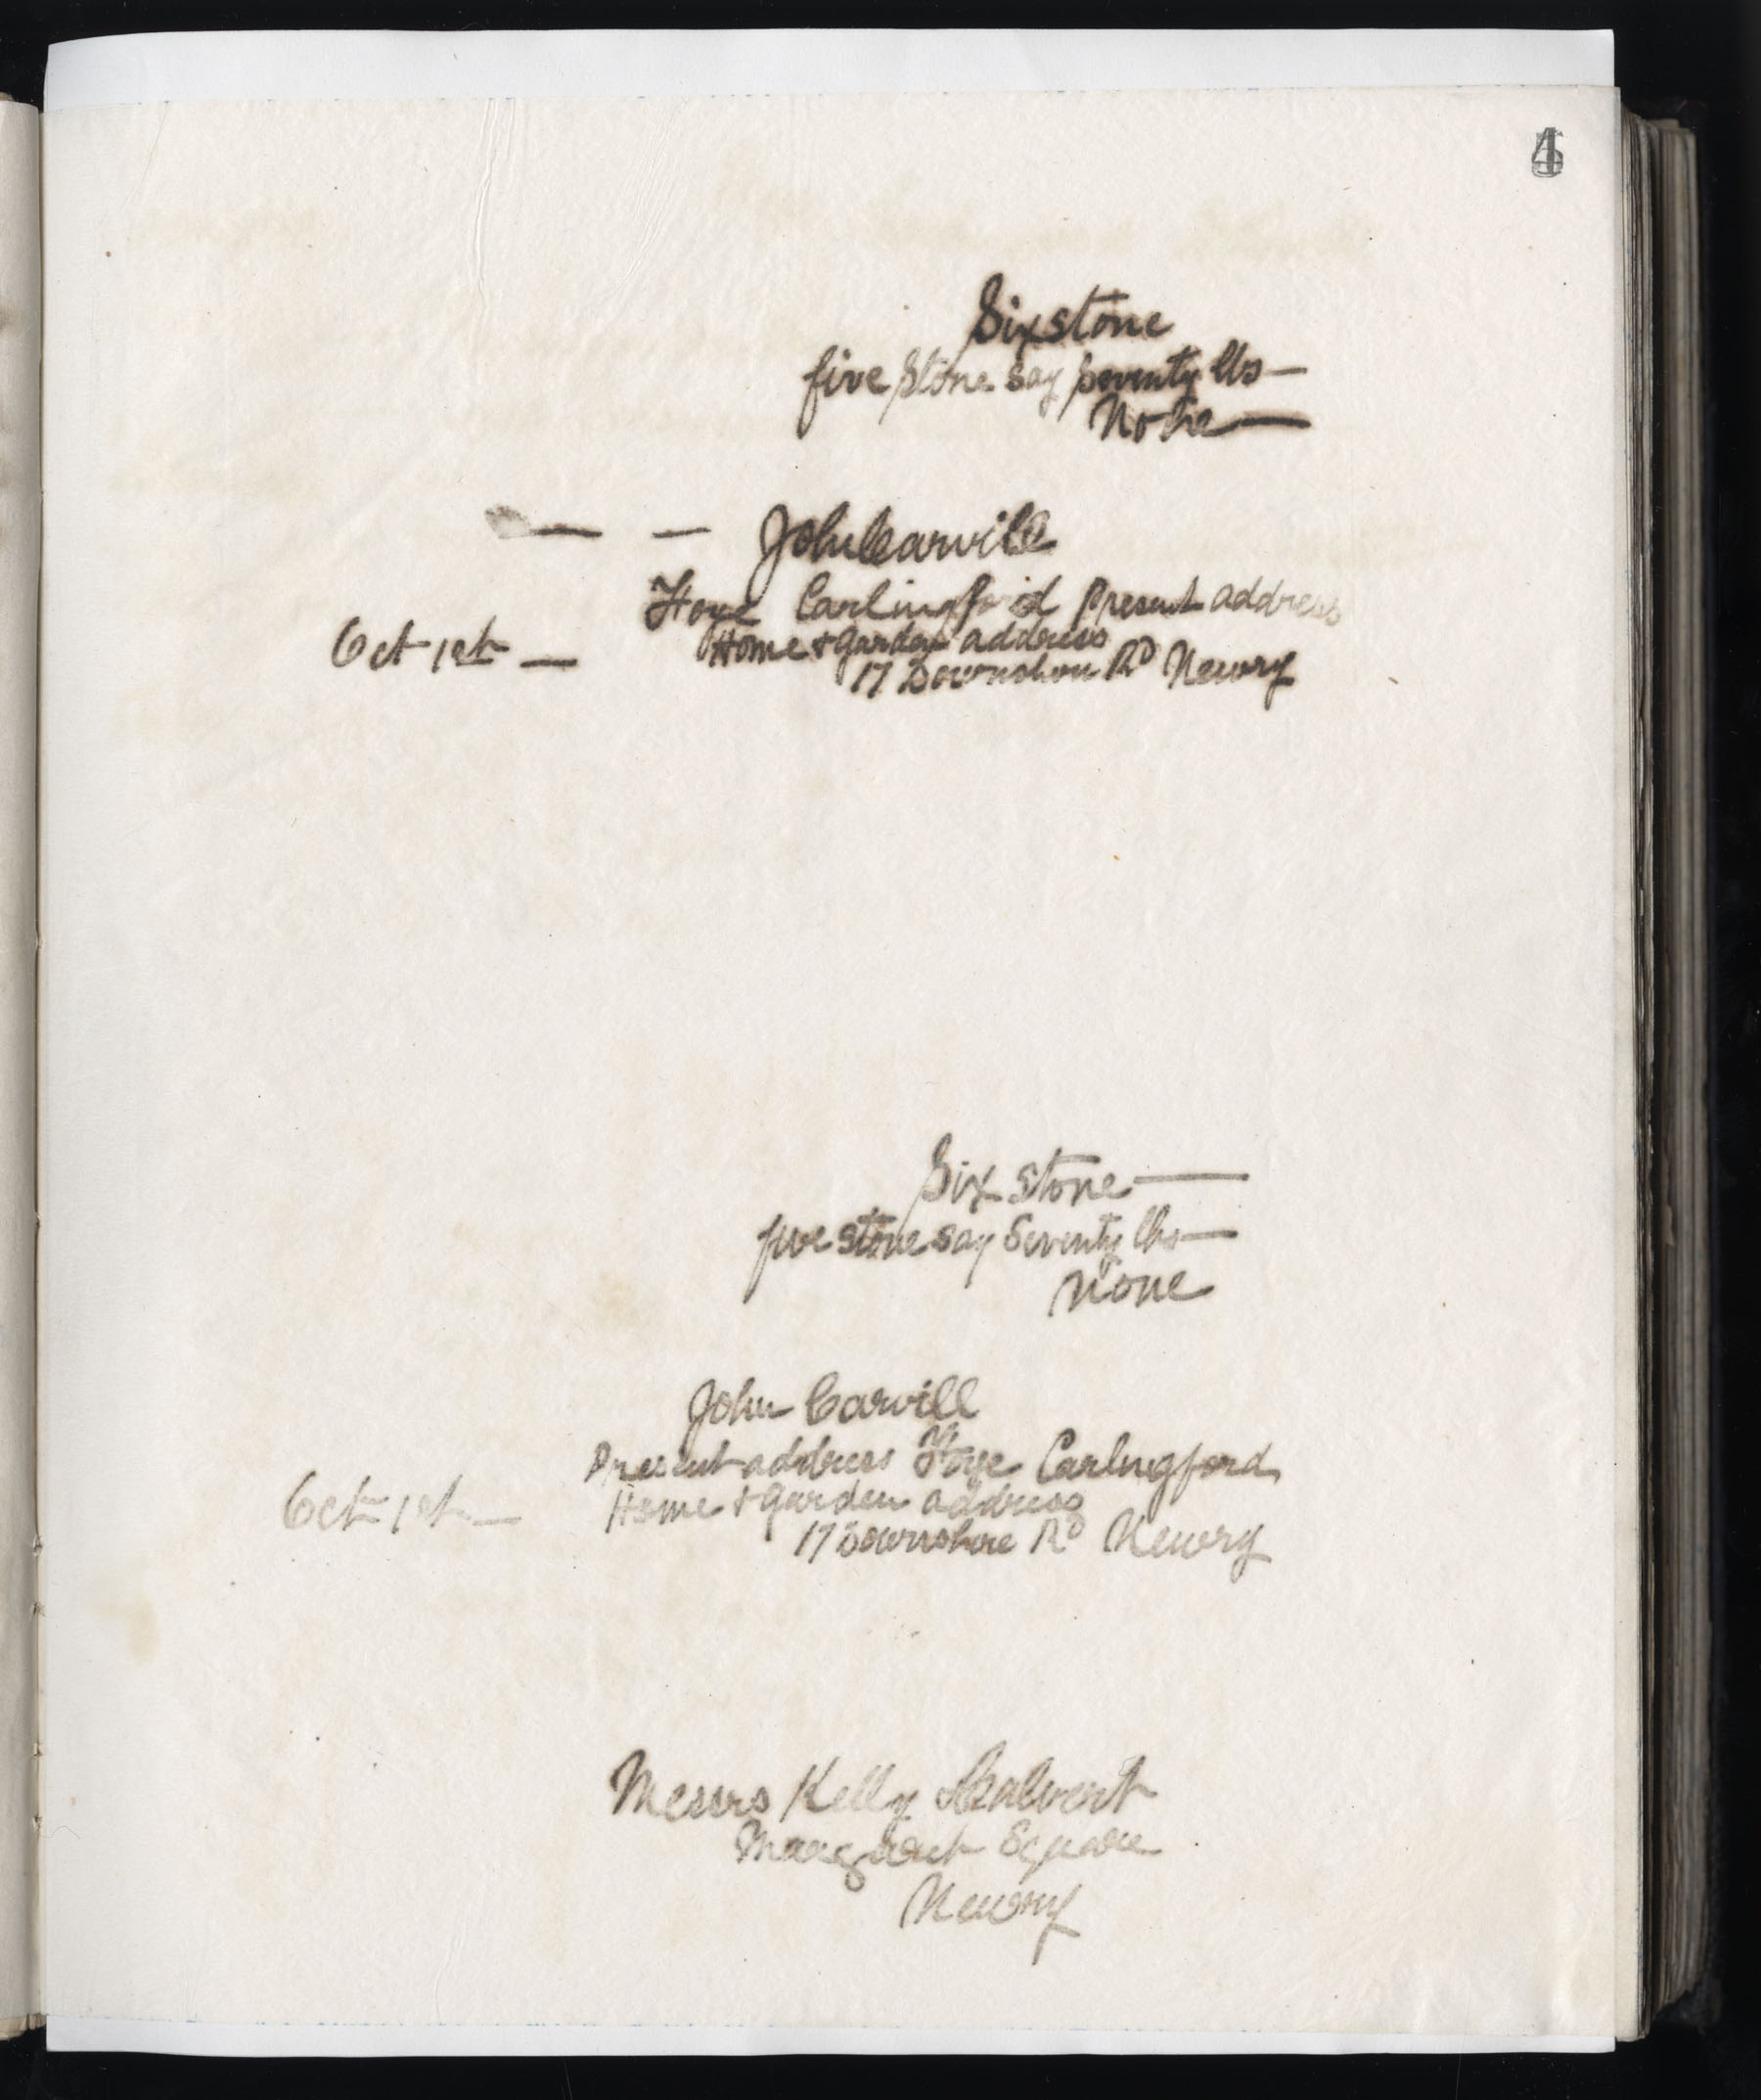 Six stone
five stone say seventy lbs —
None —
— — John Carvill
Foye Carlingford Present address
Oct 1st — Home & garden address
17 Downshire Rd Newry
Six stone —
five stone say Seventy lbs —
None
John Carvill
Present address Foye Carlingford
Oct 1st — Home & garden address
17 Downshire Rd Newry
Messrs Kelly
Margaret Square
Newry